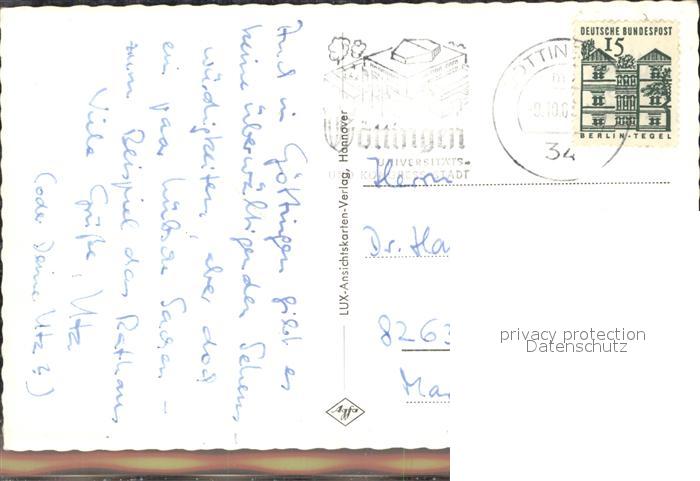 Auch in Göttingen gibt es
keine überwältigenden Sehens-
würdigkeiten, aber doch
ein paar hübsche Sachen –
zum Beispiel das Rathaus
Viele Grüße, Uta
(oder Deine Uta?)
LUX-Ansichtskarten-Verlag, Hannover
Agfa
Göttingen
UNIVERSITÄTS-
UND KONGRESS-STADT
34
DEUTSCHE BUNDESPOST
15
BERLIN-TEGEL
Herrn
Dr. Ha
8263
Ma
privacy protection
Datenschutz